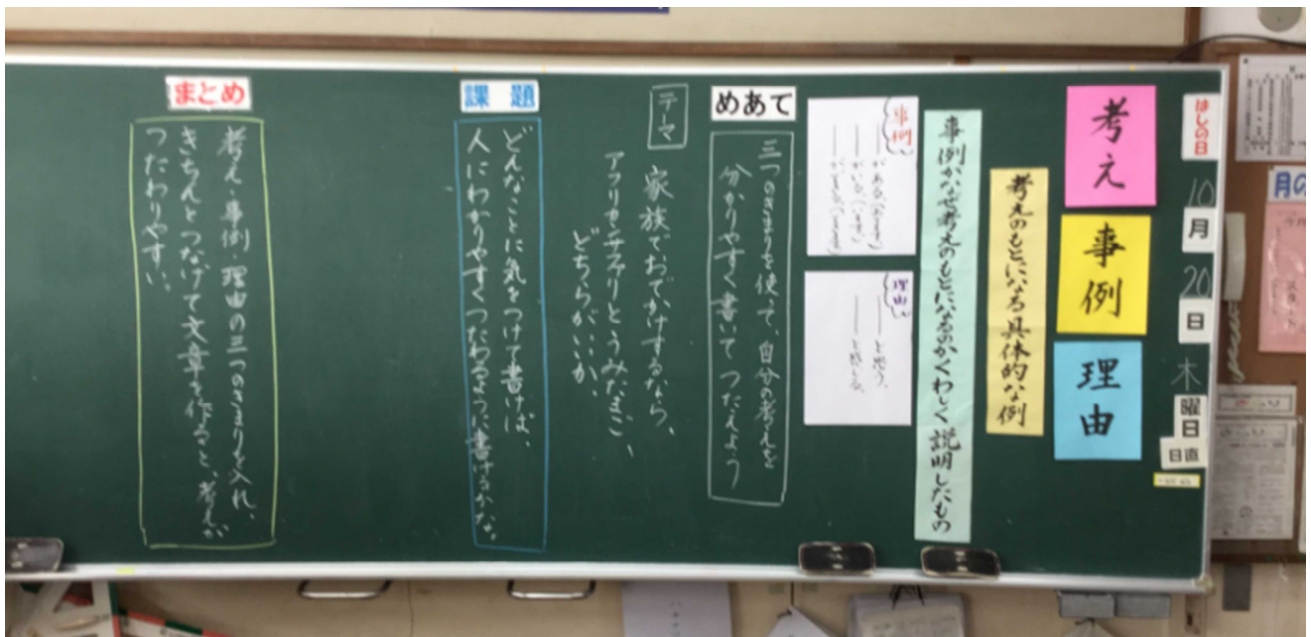 はしの日
10月20日
木曜日
日直
考え
事例
理由
考えのもとになる具体的な例
事例がなぜ考えのもとになるのかくわしく説明したもの
事例
――がある。
――がいる。
理由
――と思う。
――と感じる。
めあて
三つのきまりを使って、自分の考えを
分かりやすく書いてつたえよう
テーマ
家族でおでかけするなら、
アフリカンサファリとうみたまご、
どちらがいいか。
課題
どんなことに気をつけて書けば、
人にわかりやすくつたわるように書けるかな。
まとめ
考え・事例・理由の三つのきまりを入れ、
きちんとつなげて文章を作ると、考えが
つたわりやすい。
月の